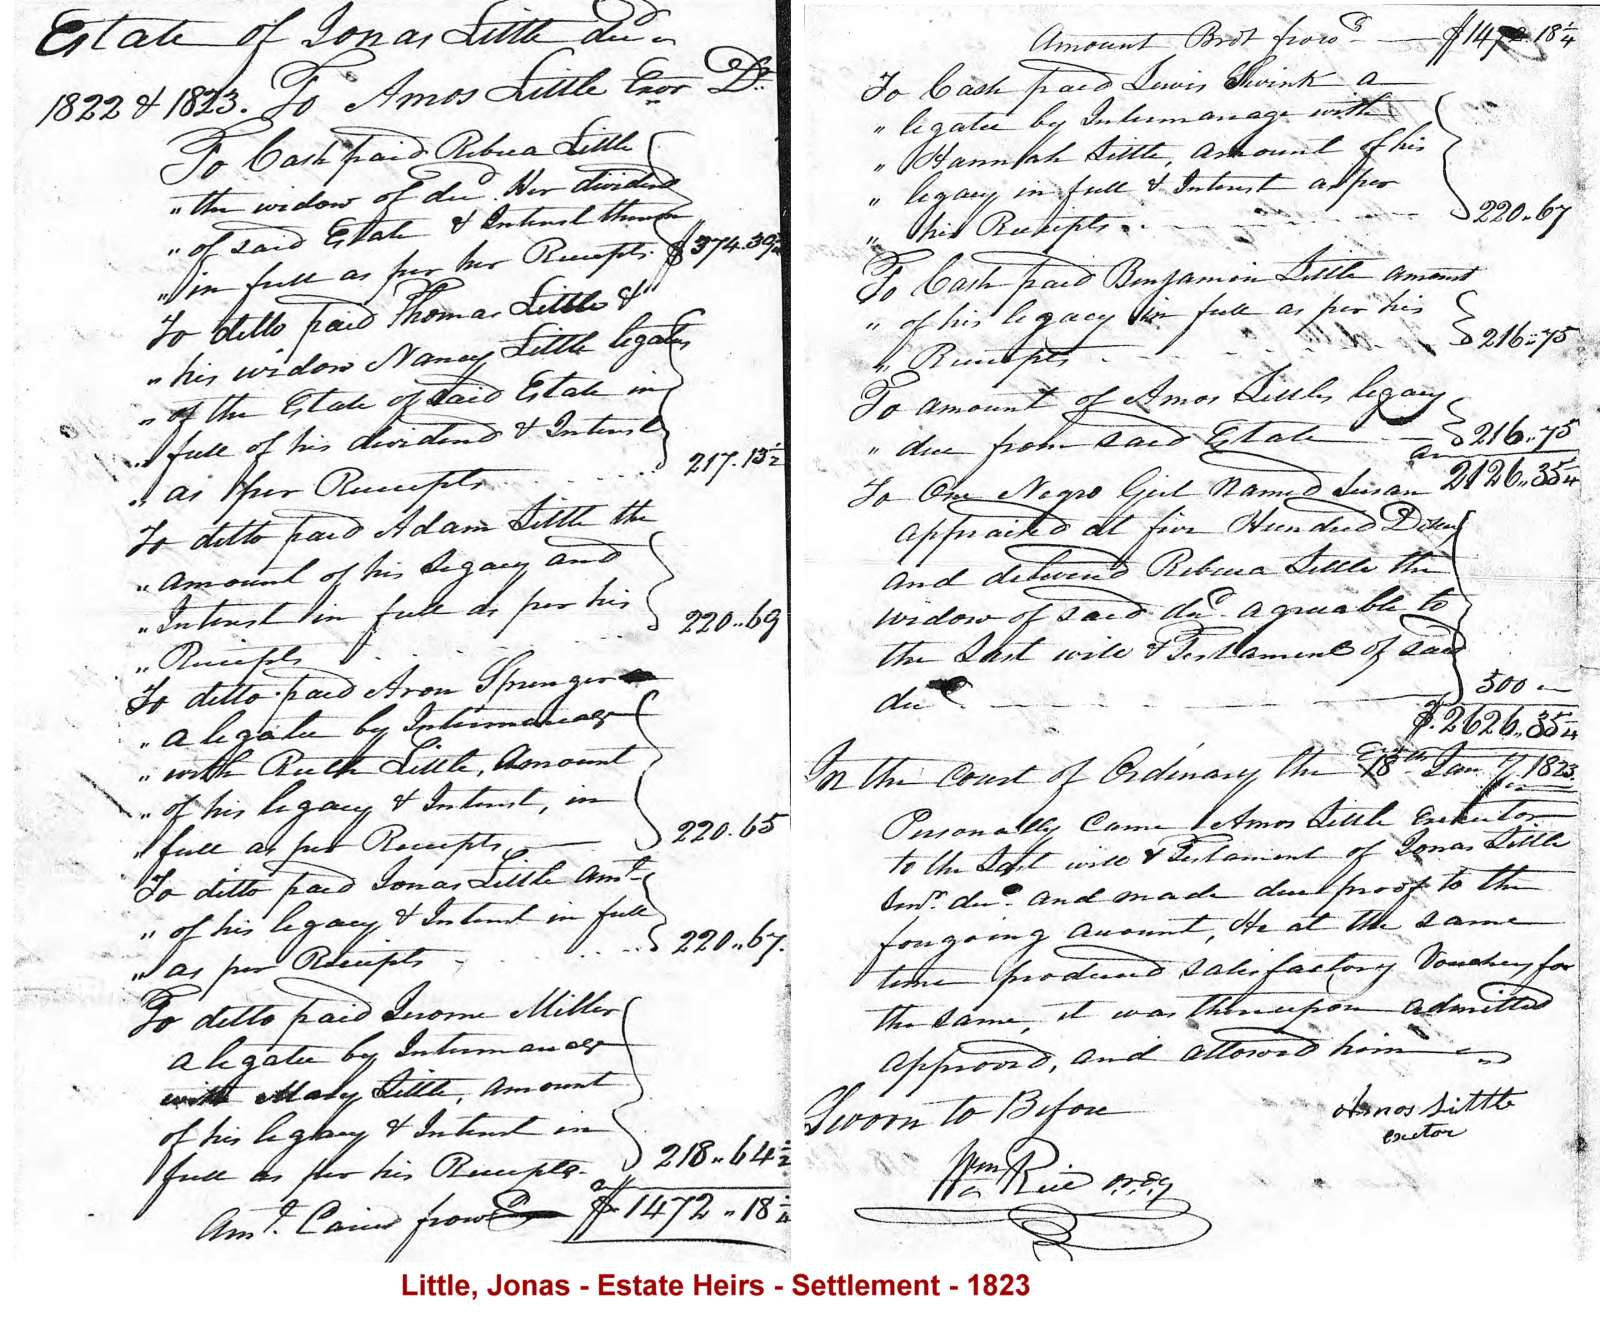 Estate of Jonas Little decd
1822 & 1823. To Amos Little Exor Dr.
To Cash paid Rebeca Little
" the widow of decd. Her dividend
" of said Estate & Interest thereon
" in full as per her Receipts. $374.39
To ditto paid Thomas Little &
" his widow Nancy Little legatees
" of the Estate of said Estate in
" full of his dividend & Interest
" as per Receipts 217.13½
To ditto paid Adam Little the
" amount of his Legacy and
" Interest in full as per his
" Receipts 220..69
To ditto paid Aron Springer
" a legatee by Intermariage
" with Ruth Little, Amount
" of his legacy & Interest, in
" full as per Receipts 220.65
To ditto paid Jonas Little Amt.
" of his legacy & Interest in full
" as per Receipts 220..67.
To ditto paid Jerome Miller
a legatee by Intermariage
with Mary Little, amount
of his legacy & Interest in
full as per his Receipts. 218..64½
Amt. Caried forwd $1472..18¼
Amount Brot forwd $1472.18¼
To Cash paid Lewis Swink a
" legatee by Intermariage with
" Hannah Little, amount of his
" legacy in full & Interest as per
" his Receipts 220..67
To Cash paid Benjamin Little amount
" of his legacy in full as per his
" Receipts 216..75
To amount of Amos Littles legacy
" due from said Estate 216..75
2126..35¼
To One Negro Girl Named Susan
appraised at five Hundred Dollars
and delivered Rebecca Little the
widow of said decd. agreeable to
the Last will & Testament of said
decd 500
$.2626..35¼
In the Court of Ordinary the 18th Jany 1823.
Personally Came Amos Little Executor
to the Last will & Testament of Jonas Little
Senr. decd. and made due proof to the
forgoing account, He at the same
time produced satisfactory Vouchers for
the same, it was thereupon admitted
approved, and allowed him
Sworn to Before
Amos Little
exctor
Wm Rice ordy
Little, Jonas - Estate Heirs - Settlement - 1823